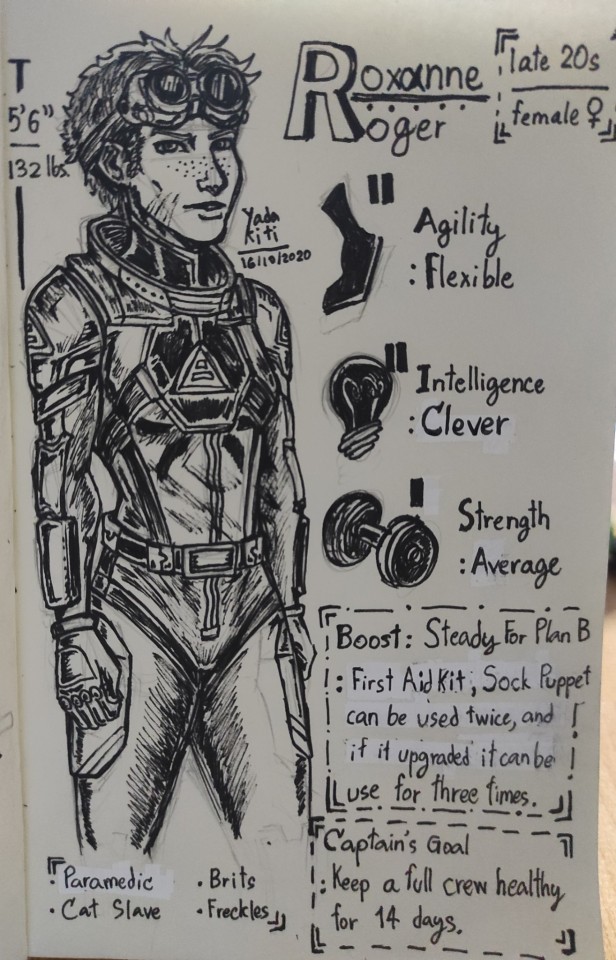 Roxanne
Roger
late 20s
female ♀
5'6"
132 lbs.
Yada
Kiti
16/10/2020
Agility
: Flexible
Intelligence
: Clever
Strength
: Average
Boost: Steady For Plan B
: First Aid Kit, Sock Puppet
can be used twice, and
if it upgraded it can be
use for three times.
Captain's Goal
: Keep a full crew healthy
for 14 days.
: Paramedic
• Brits
• Cat Slave
• Freckles